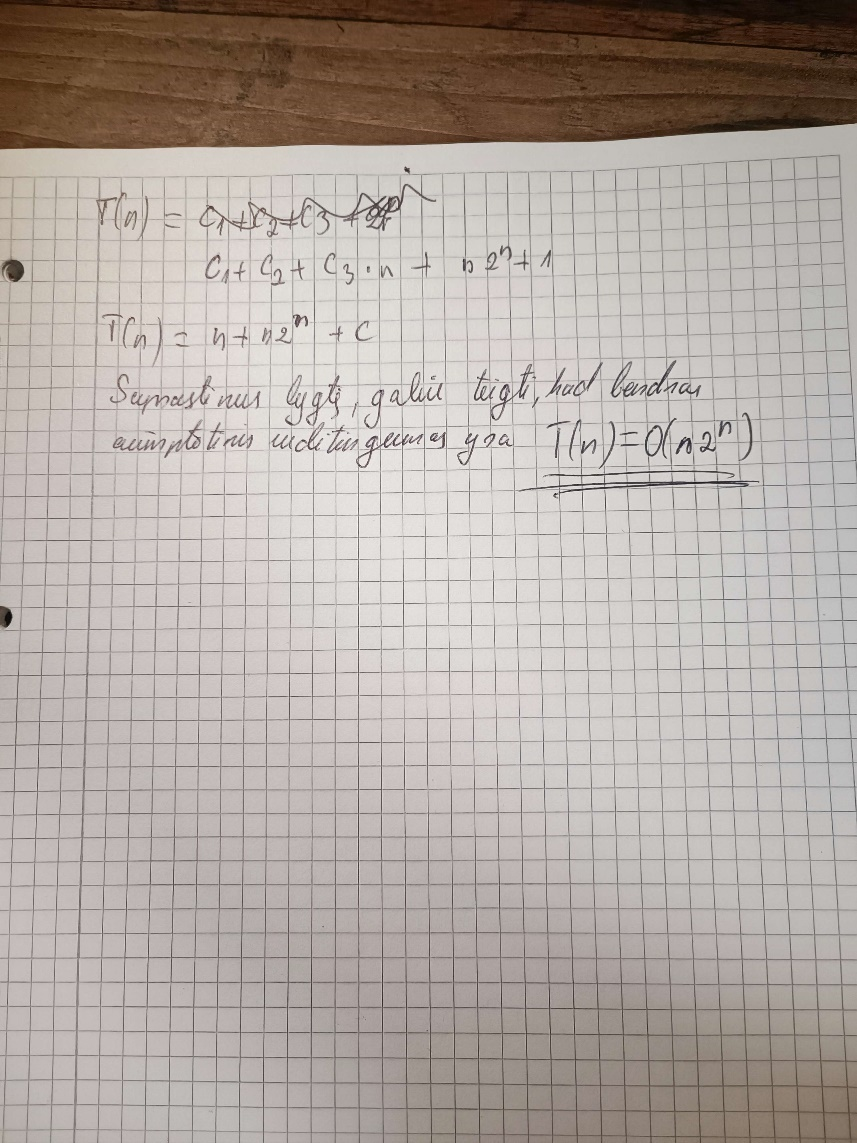 T(n) = C₁+C₂+C₃+
C₁+ C₂ + C₃·n + n 2ⁿ + 1
T(n) = n + n2ⁿ + C
Suprastinus lygtį, galiu teigti, kad bendras
asimptotinis sudėtingumas yra T(n)=O(n2ⁿ)